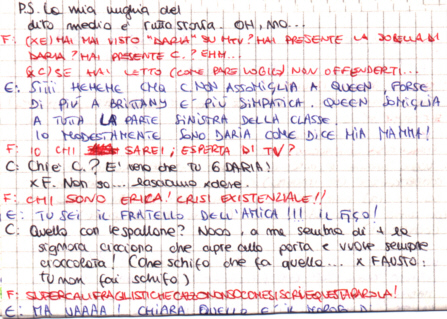 P.S. La mia unghia del
dito medio è tutta storta. OH, NO...
F: (XE) HAI MAI VISTO "DARIA" SU MTV? HAI PRESENTE LA SORELLA DI
DARIA? HAI PRESENTE C.? EHM...
(X C) SE HAI LETTO (COME PARE LOGICO) NON OFFENDERTI...
E: Siiii HEHEHE CMQ C. NON ASSOMIGLIA A QUEEN, FORSE
DI PIÙ A BRITTANY E' PIÙ SIMPATICA. QUEEN SOMIGLIA
A TUTTA LA PARTE SINISTRA DELLA CLASSE.
IO MODESTAMENTE SONO DARIA COME DICE MIA MAMMA!
F: IO CHI SAREI, ESPERTA DI TV?
C: Chi è C.? E' vero che tu 6 DARIA!
X F. Non so... lasciamo
F: CHI SONO ERICA! CRISI EXISTENZIALE!!
E: TU SEI IL FRATELLO DELL'AMICA!!! IL FIGO!
C: Quello con le spallone? Nooo, a me sembra di + la
signora cicciona che apre alla porta e vuole sempre
cioccolata! (Che schifo che fa quello... X FAUSTO:
tu non fai schifo)
F: E: MA VAAAA! CHIARA QUELLO E' IL DI